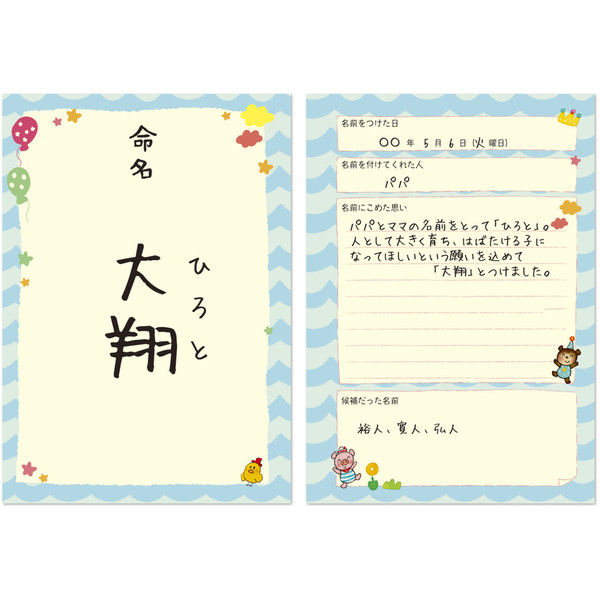 命名
大翔
ひろと
名前をつけた日
〇〇 年 5 月 6 日 (火 曜日)
名前を付けてくれた人
パパ
名前にこめた思い
パパとママの名前をとって「ひろと」。
人として大きく育ち、はばたける子に
なってほしいという願いを込めて
「大翔」とつけました。
候補だった名前
裕人、寛人、弘人